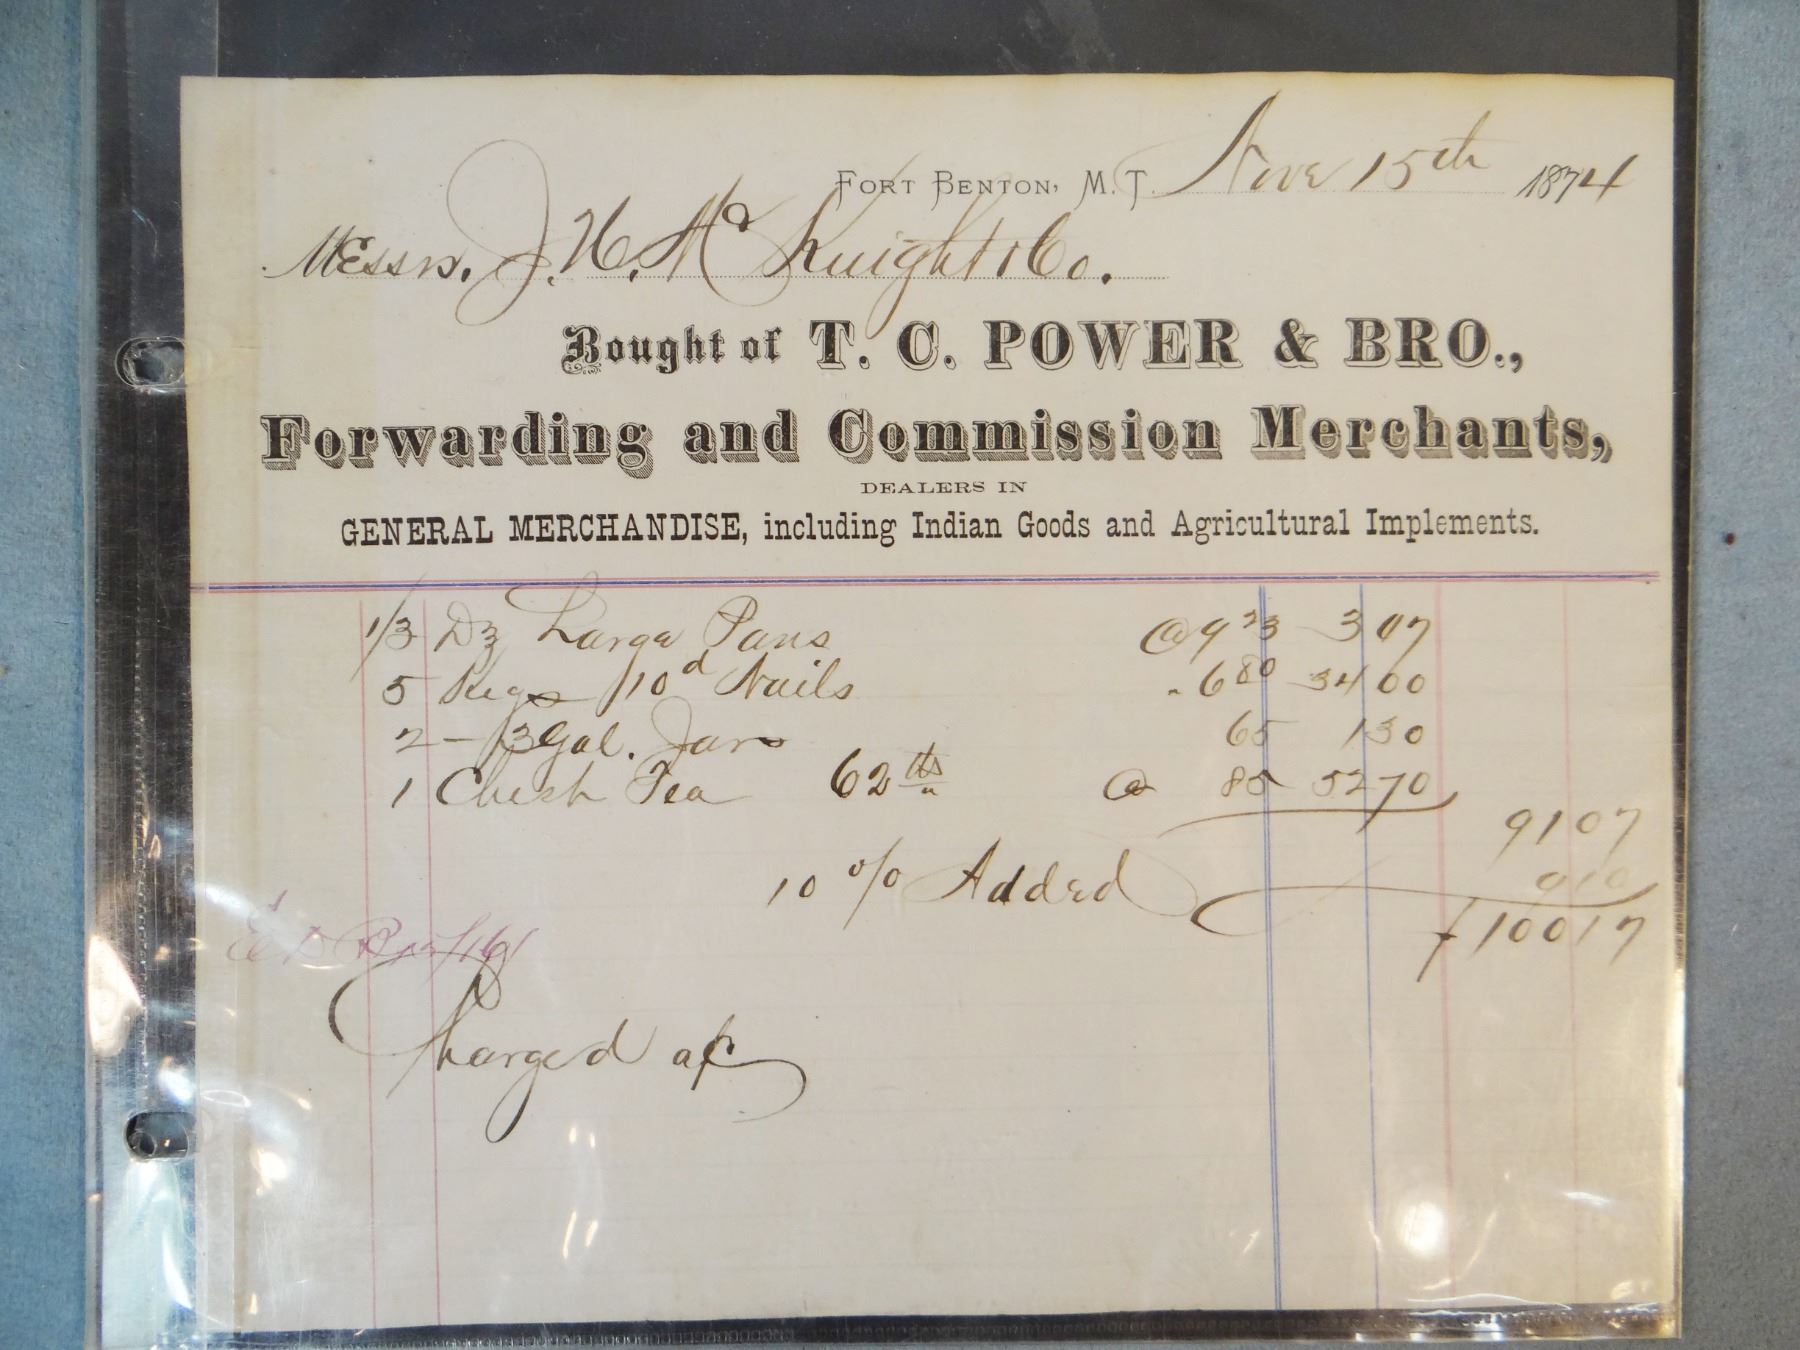 Fort Benton, M. T. Nov 15th 1874
Messrs. J. H. McKnight & Co.
Bought of T. C. POWER & BRO.,
Forwarding and Commission Merchants,
DEALERS IN
GENERAL MERCHANDISE, including Indian Goods and Agricultural Implements.
1/3 Dz Large Pans @ 9 23 3 07
5 Kegs 10d Nails " 6 80 34 00
2 - 3 Gal. Jars 65 1 30
1 Chest Tea 62 lbs @ 85 52 70
91 07
10 % Added 9 10
$ 100 17
Charged a/c